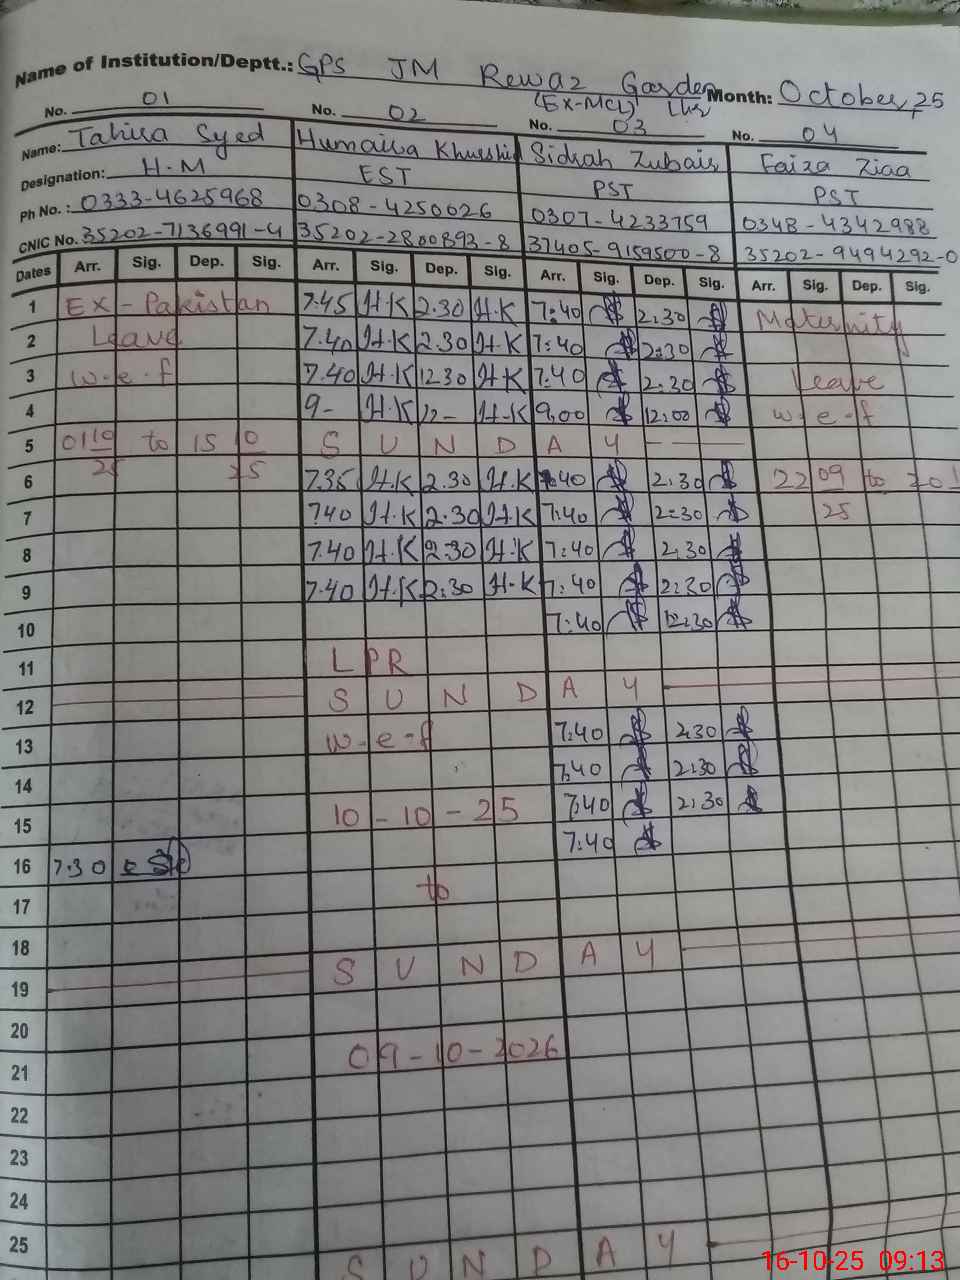 Name of Institution/Deptt.: GPS JM Rewaz Garden Month: October, 25
(Ex-MCL) Lhr
No. 01 No. 02 No. 03 No. 04
Name: Tahira Syed Humaira Khurshid Sidrah Zubair Faiza Ziaa
Designation: H.M EST PST PST
Ph No.: 0333-4625968 0308-4250026 0307-4233759 0348-4342988
CNIC No. 35202-7136991-4 35202-2800893-8 37405-9159500-8 35202-9494292-0
Dates Arr. Sig. Dep. Sig. Arr. Sig. Dep. Sig. Arr. Sig. Dep. Sig. Arr. Sig. Dep. Sig.
1 Ex-Pakistan 7.45 H.K 2.30 H.K 7:40 2:30 Maternity
2 Leave 7.40 H.K 2.30 H.K 7:40 2:30
3 w-e-f 7.40 H.K 12.30 H.K 7:40 2:30 Leave
4 9- H.K 12- H-K 9.00 12:00 w-e-f
5 0110 to 15 0 SUNDAY
25 25
6 7.35 H.K 2.30 H.K 7:40 2:30 22 09 to 20 1
7 740 H.K 2.30 H.K 7:40 2:30 25
8 7.40 H.K 2:30 H.K 7:40 2.30
9 7.40 H.K 2.30 H-K 7:40 2:30
10 7:40 12:30
11 LPR
12 SUNDAY
13 w-e-f 7:40 2.30
14 7:40 2:30
15 10-10-25 7:40 2:30
16 7.30 7:40
17 to
18
19 SUNDAY
20
21 09-10-2026
22
23
24
25
SUNDAY
16-10-25 09:13